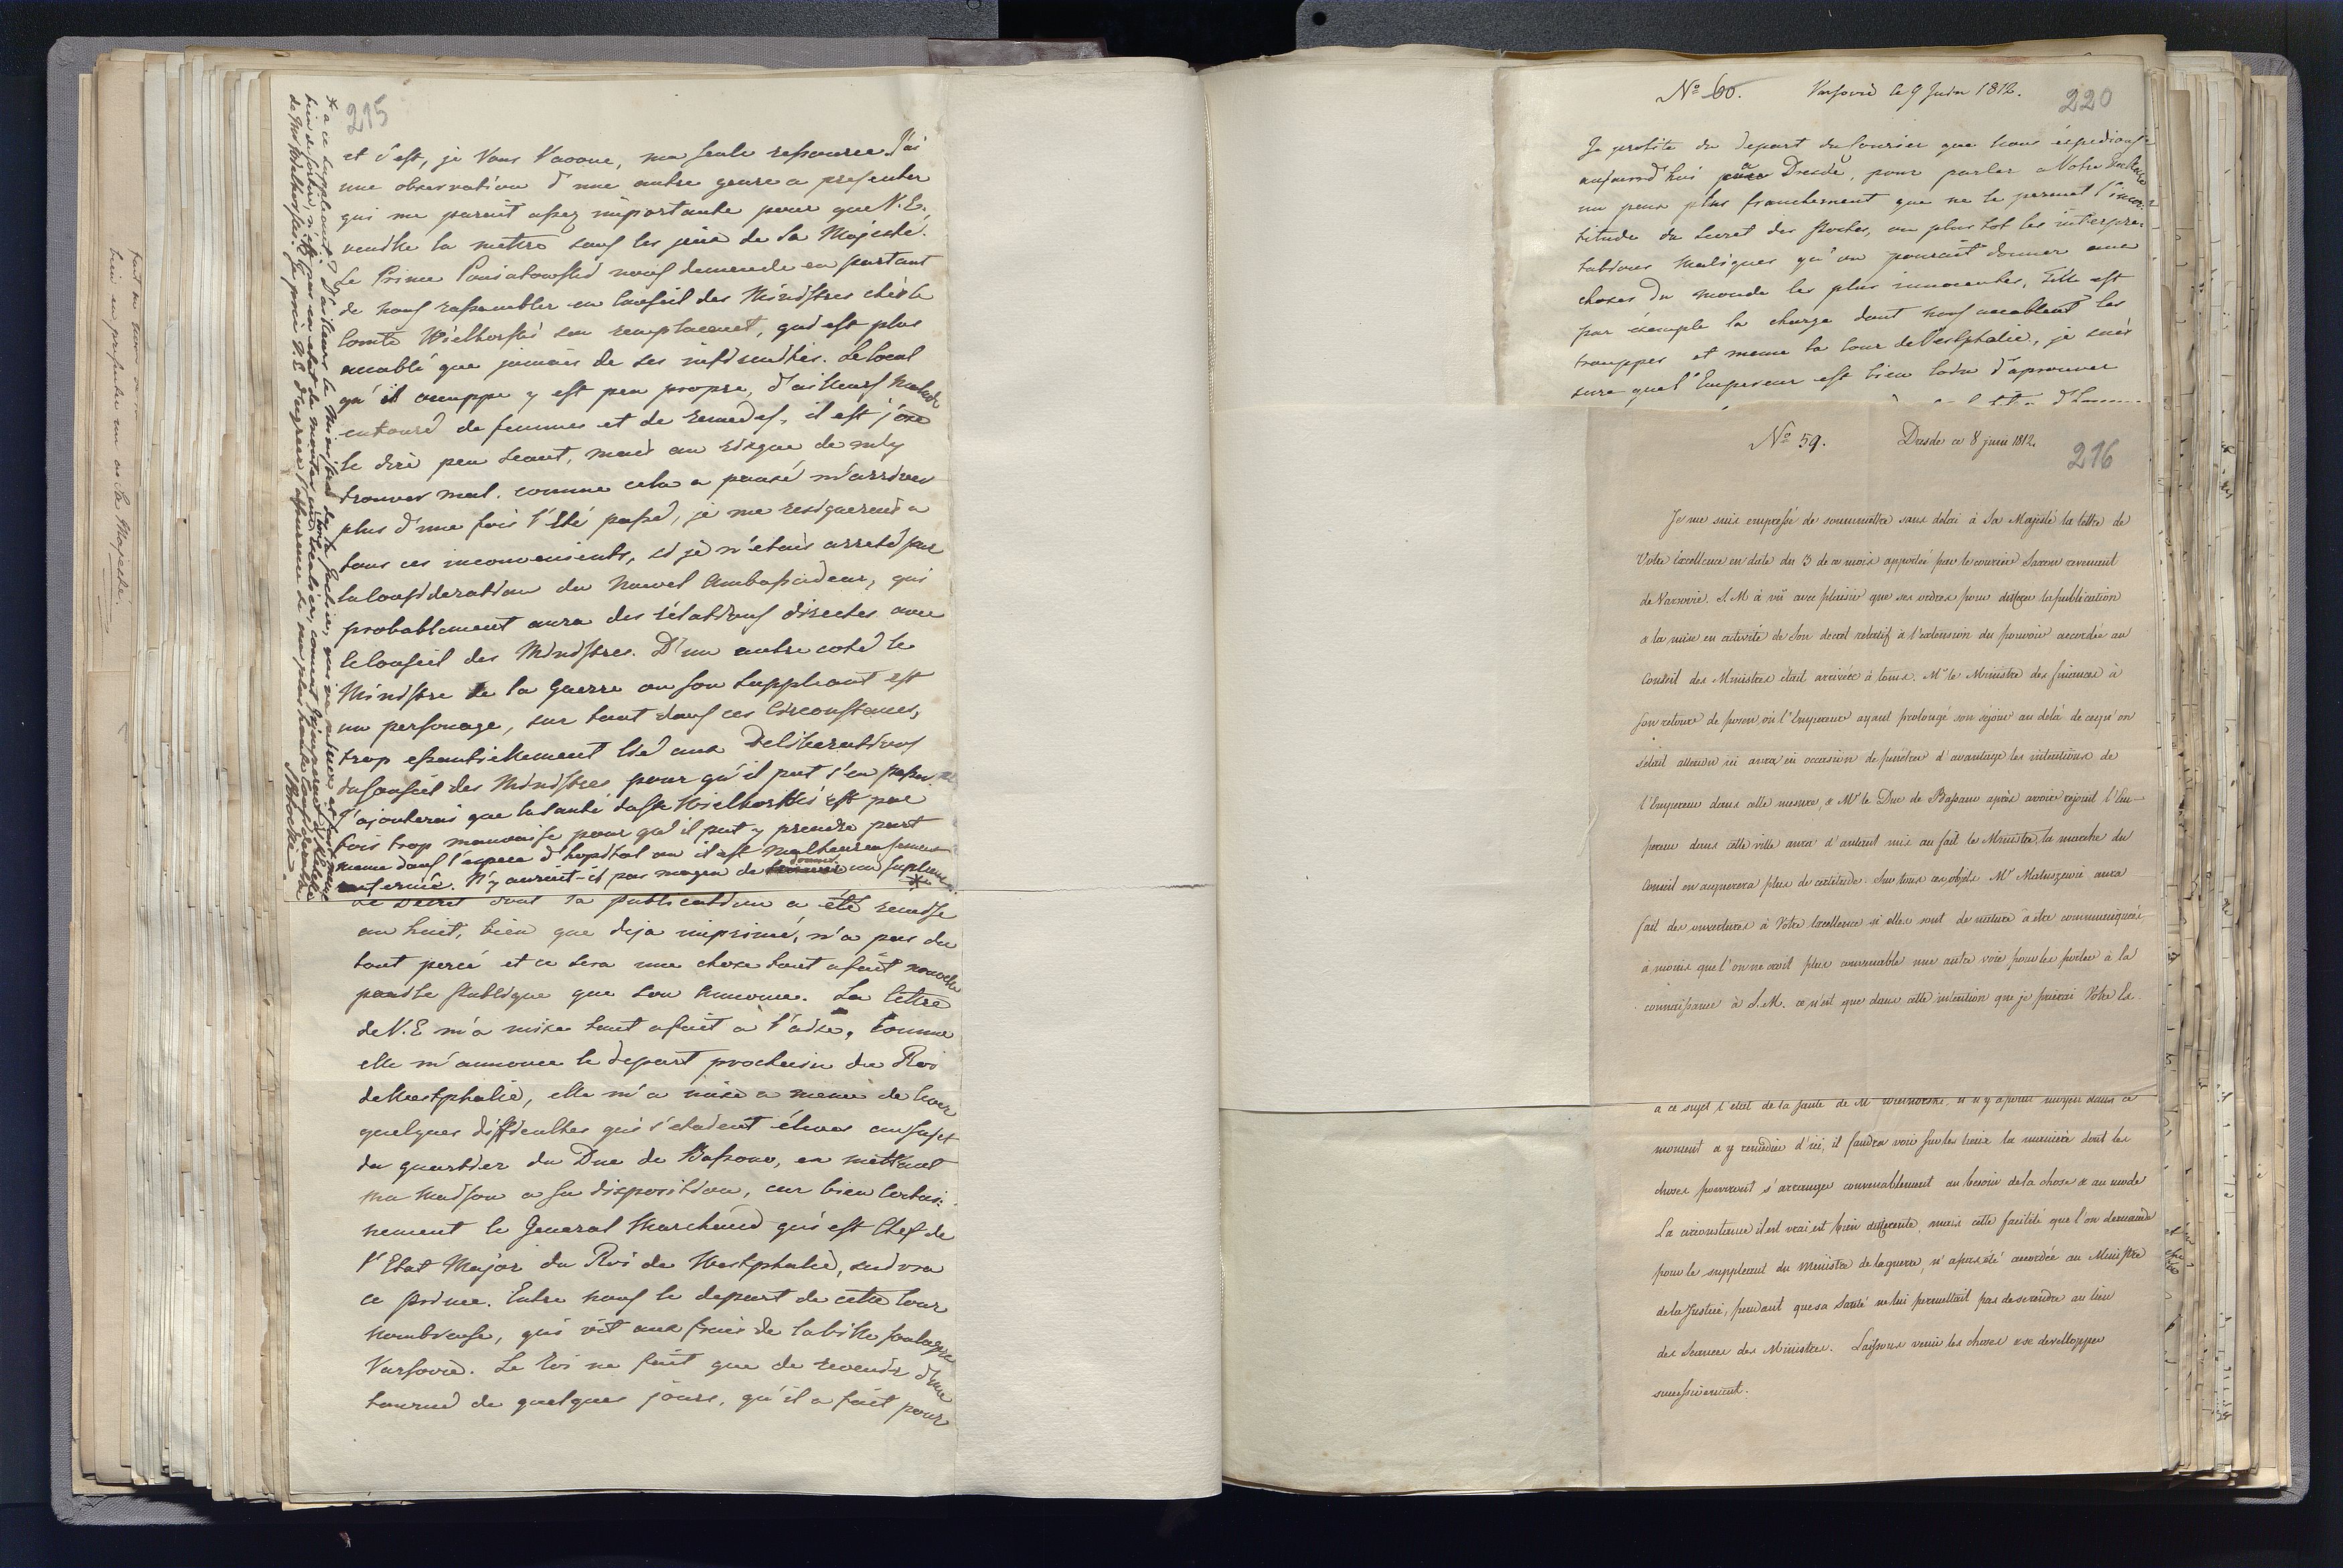 215
et c'est, je Vous l'avoue, ma seule ressource. J'ai
une observation d'une autre genre a presenter
qui me parait assez importante pour que V. E.
veuille la mettre sous les yeux de Sa Majesté.
Le Prince Poniatowski nous demande en partant
de nous rassembler en Conseil des Ministres chez le
Comte Wielhorski son remplacent, qui est plus
accablé que jamais de ses infirmités. Le local
qu'il occuppe y est peu propre, d'ailleurs malade
entouré de femmes et de remedes, il est j'ose
le dire peu seant, mais au risque de m'y
trouver mal, comme cela a pensé m'arriver
plus d'une fois l'Eté passé, je me resignerais a
tous ces inconvenients, si je n'etais arreté par
la Consideration du nouvel Ambassadeur, qui
probablement aura des rélations directes avec
le Conseil des Ministres. D'un autre coté le
Ministre de la Guerre ou son Suppleant est
un personage, sur tout dans ces Circonstances,
trop essentiellement lié aux Deliberations
du Conseil des Ministres pour qu'il put s'en passer.
J'ajouterai que la santé du Sr Wielhorski est par
fois trop mauvaise pour qu'il put y prendre part
meme dans l'espece d'hopital ou il est malheureusement
enfermé. N'y aurait-il pas moyen de donner un supleant
*
a ce suppleant? D'ailleurs le Ministre de la Justice,
bien de sortir, n'est pas en etat de monter un escalier, comme
de Mr Wielhorski. Je prie V. E. d'agreer l'assurance de ma plus haute Consideration
SPotocki.
bien en presenter un a Sa Majesté.
le Decret dont la publication a été remise
au huit, bien que deja imprimé, n'a pas du
tout percé et ce sera une chose tout afait nouvelle
pour le Publique que son annonce. La lettre
de V. E m'a mise tout afait à l'aise, Comme
elle m'annonce le depart prochain du Roi
de Westphalie, elle m'a mise a meme de lever
quelques difficultés qui s'etaient élevés au sujet
du quartier du Duc de Bassano, en mettant
ma Maison a sa disposition, car bien Certai-
nement le General Marchand qui est Chef de
l'Etat Major du Roi de Westphalie, suivra
ce prince. Entre nous le depart de cette Cour
nombreuse, qui vit aux frais de la ville soulagera
Varsovie. Le Roi ne fait que de revenir d'une
tournée de quelques jours, qu'il a fait pour
No 60. Varsovie le 9 Juin 1812.
220
Je profite du depart du Courier que nous expedions
aujourd'hui à Dresde, pour parler a Votre Excellence
un peux plus franchement que ne le permet l'incer-
titude du secret des Postes, ou plus tot les interpre-
tations maliques qu'on pourrait donner aux
choses du monde les plus innocentes, telle est
par éxemple la charge dont nous accablent les
trouppes et meme la Cour de Westphalie, je suis
sure que l'Empereur est bien loin d'aprouver
No 59. Dresde ce 8 juin 1812.
216
Je me suis empressé de soummettre sans delai à Sa Majesté la lettre de
Votre Excellence en date du 3 de ce mois apportée par le courier Saxon revenant
de Varsovie. S. M à vû avec plaisir que ses ordres pour differer la publication
& la mise en activité de Son decret relatif à l'extension du pouvoir accordée au
Conseil des Ministres était arrivée à tems. Mr le Ministre des finances à
son retour de posen, où l'Empereur ayant prolongé son séjour au delà de ce qu'on
s'etait attendu ici aura eu occasion de penetrer d'avantage les intentions de
l'Empereur dans cette mesure, & Mr le Duc de Bassano après avoir rejoint l'Em-
pereur dans cette ville aura d'autant mis au fait le Ministre, la marche du
Conseil en acquerera plus de certitude. Sur tous ces objets Mr Matuszewic aura
fait des ouvertures à Votre Excellence si elles sont de nature à etre communiquées,
à moins que l'on ne croit plus convenable une autre voie pour les porter à la
connaissance à S. M. ce n'est que dans cette intention que je prierai Votre Ex.
a ce sujet l'etat de la santé de Mr Wielhorski, il n'y a point moyen dans ce
moment a y remedier d'ici, il faudra voir sur les lieux la maniere dont les
choses pourront s'arranger convenablement au besoin de la chose & au mode
La circonstance il est vrai est bien differente, mais cette facilité que l'on demande
pour le suppleant du Ministre de la guerre, n'a pas été accordée au Ministre
de la Justice, pendant que sa Santé ne lui permettait pas de se rendre au lieu
des Seances des Ministres. Laissons venir les choses & se developper
successivement.